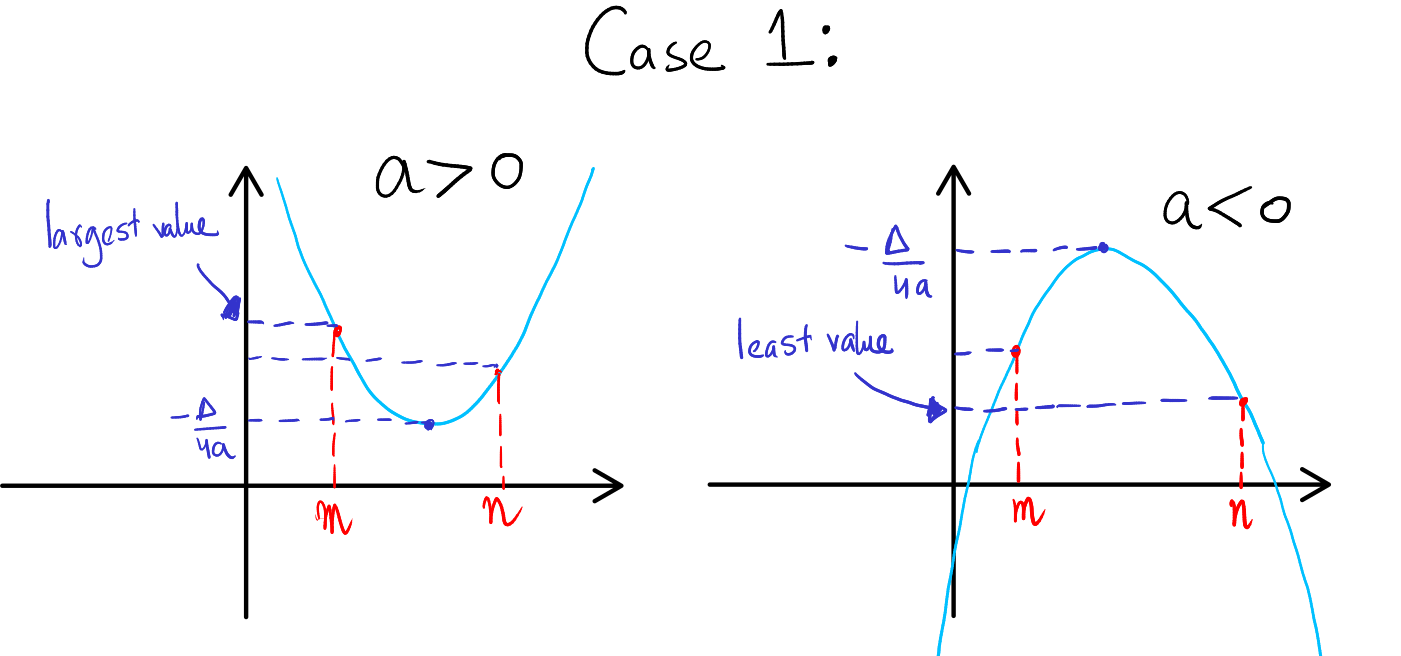 Case 1:
a > 0
largest value
-Δ/4a
m
n
a < 0
-Δ/4a
least value
m
n